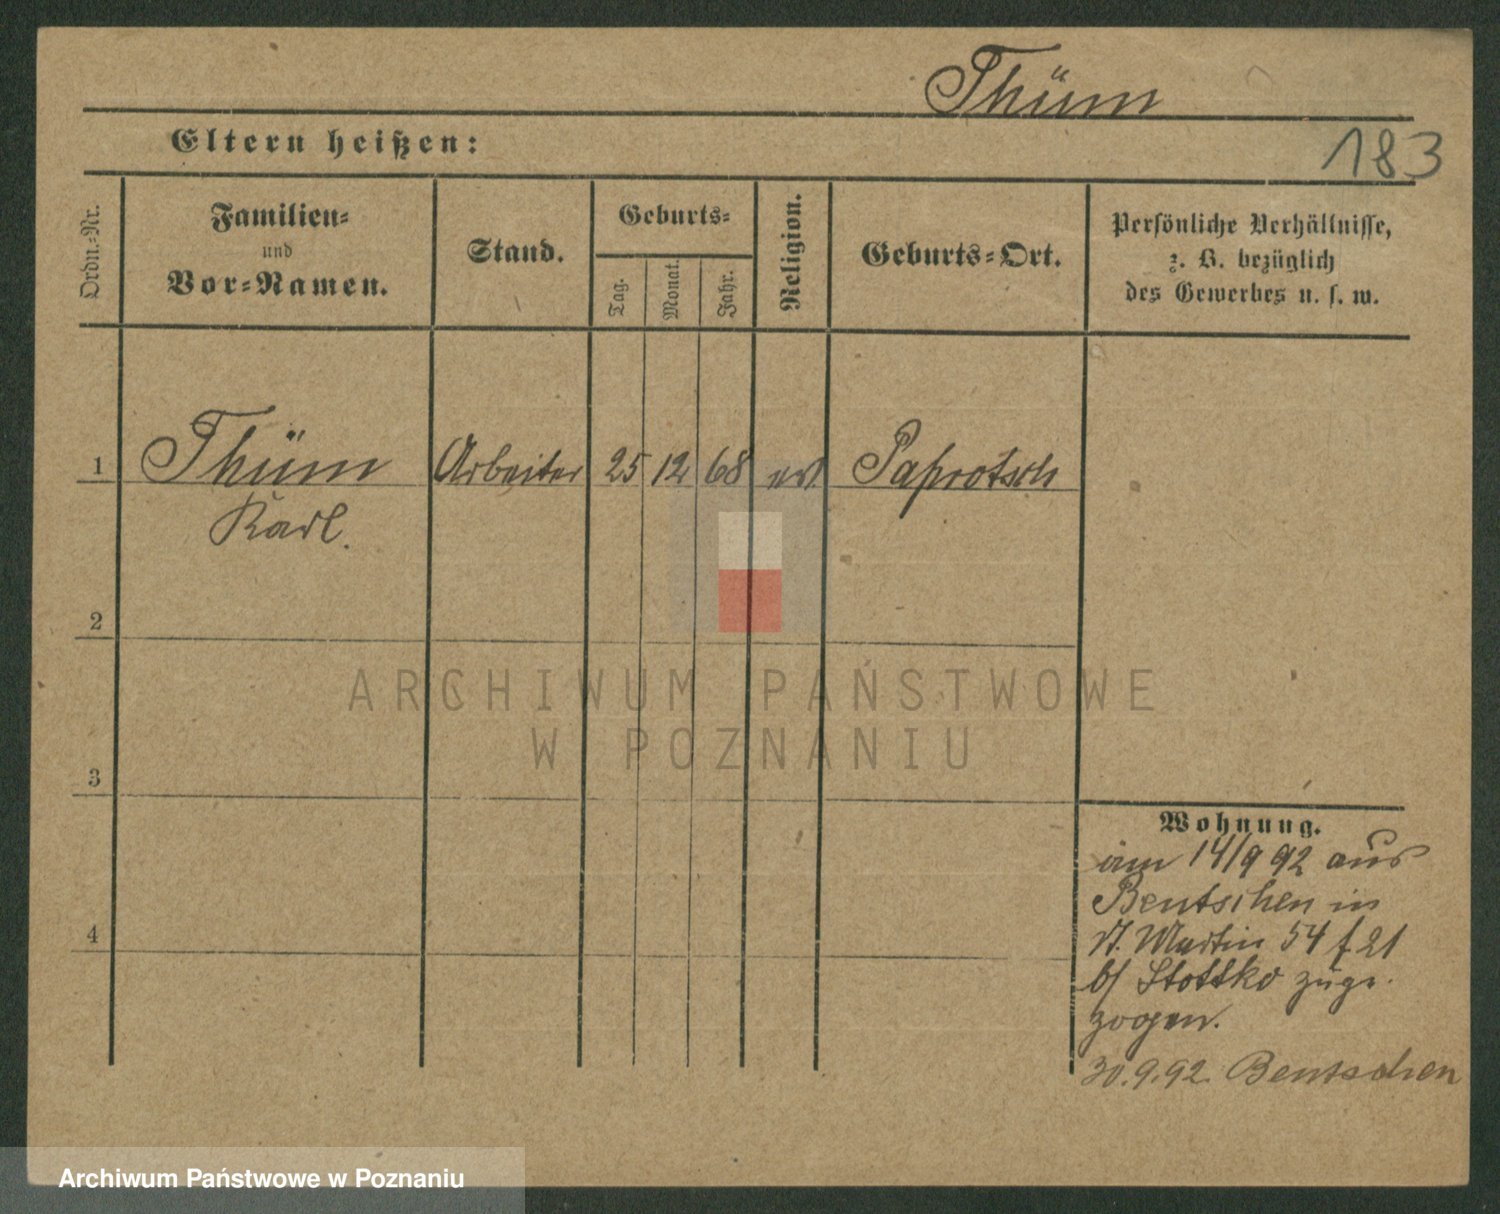 Thüm
Eltern heißen:
183
Ordn.-Nr.
Familien-
und
Vor-Namen.
Stand.
Geburts-
Tag.
Monat.
Jahr.
Religion.
Geburts-Ort.
Persönliche Verhältnisse,
z. B. bezüglich
des Gewerbes u. s. w.
1 Thüm Arbeiter 25 12 68 Paprotsch
Karl.
2
3
4
Wohnung.
am 14/9 92 aus
Bentschen in
St. Martin 54 f 21
b/ Stottko zuge-
zogen.
30.9.92 Bentschen
ARCHIWUM PAŃSTWOWE
W POZNANIU
Archiwum Państwowe w Poznaniu